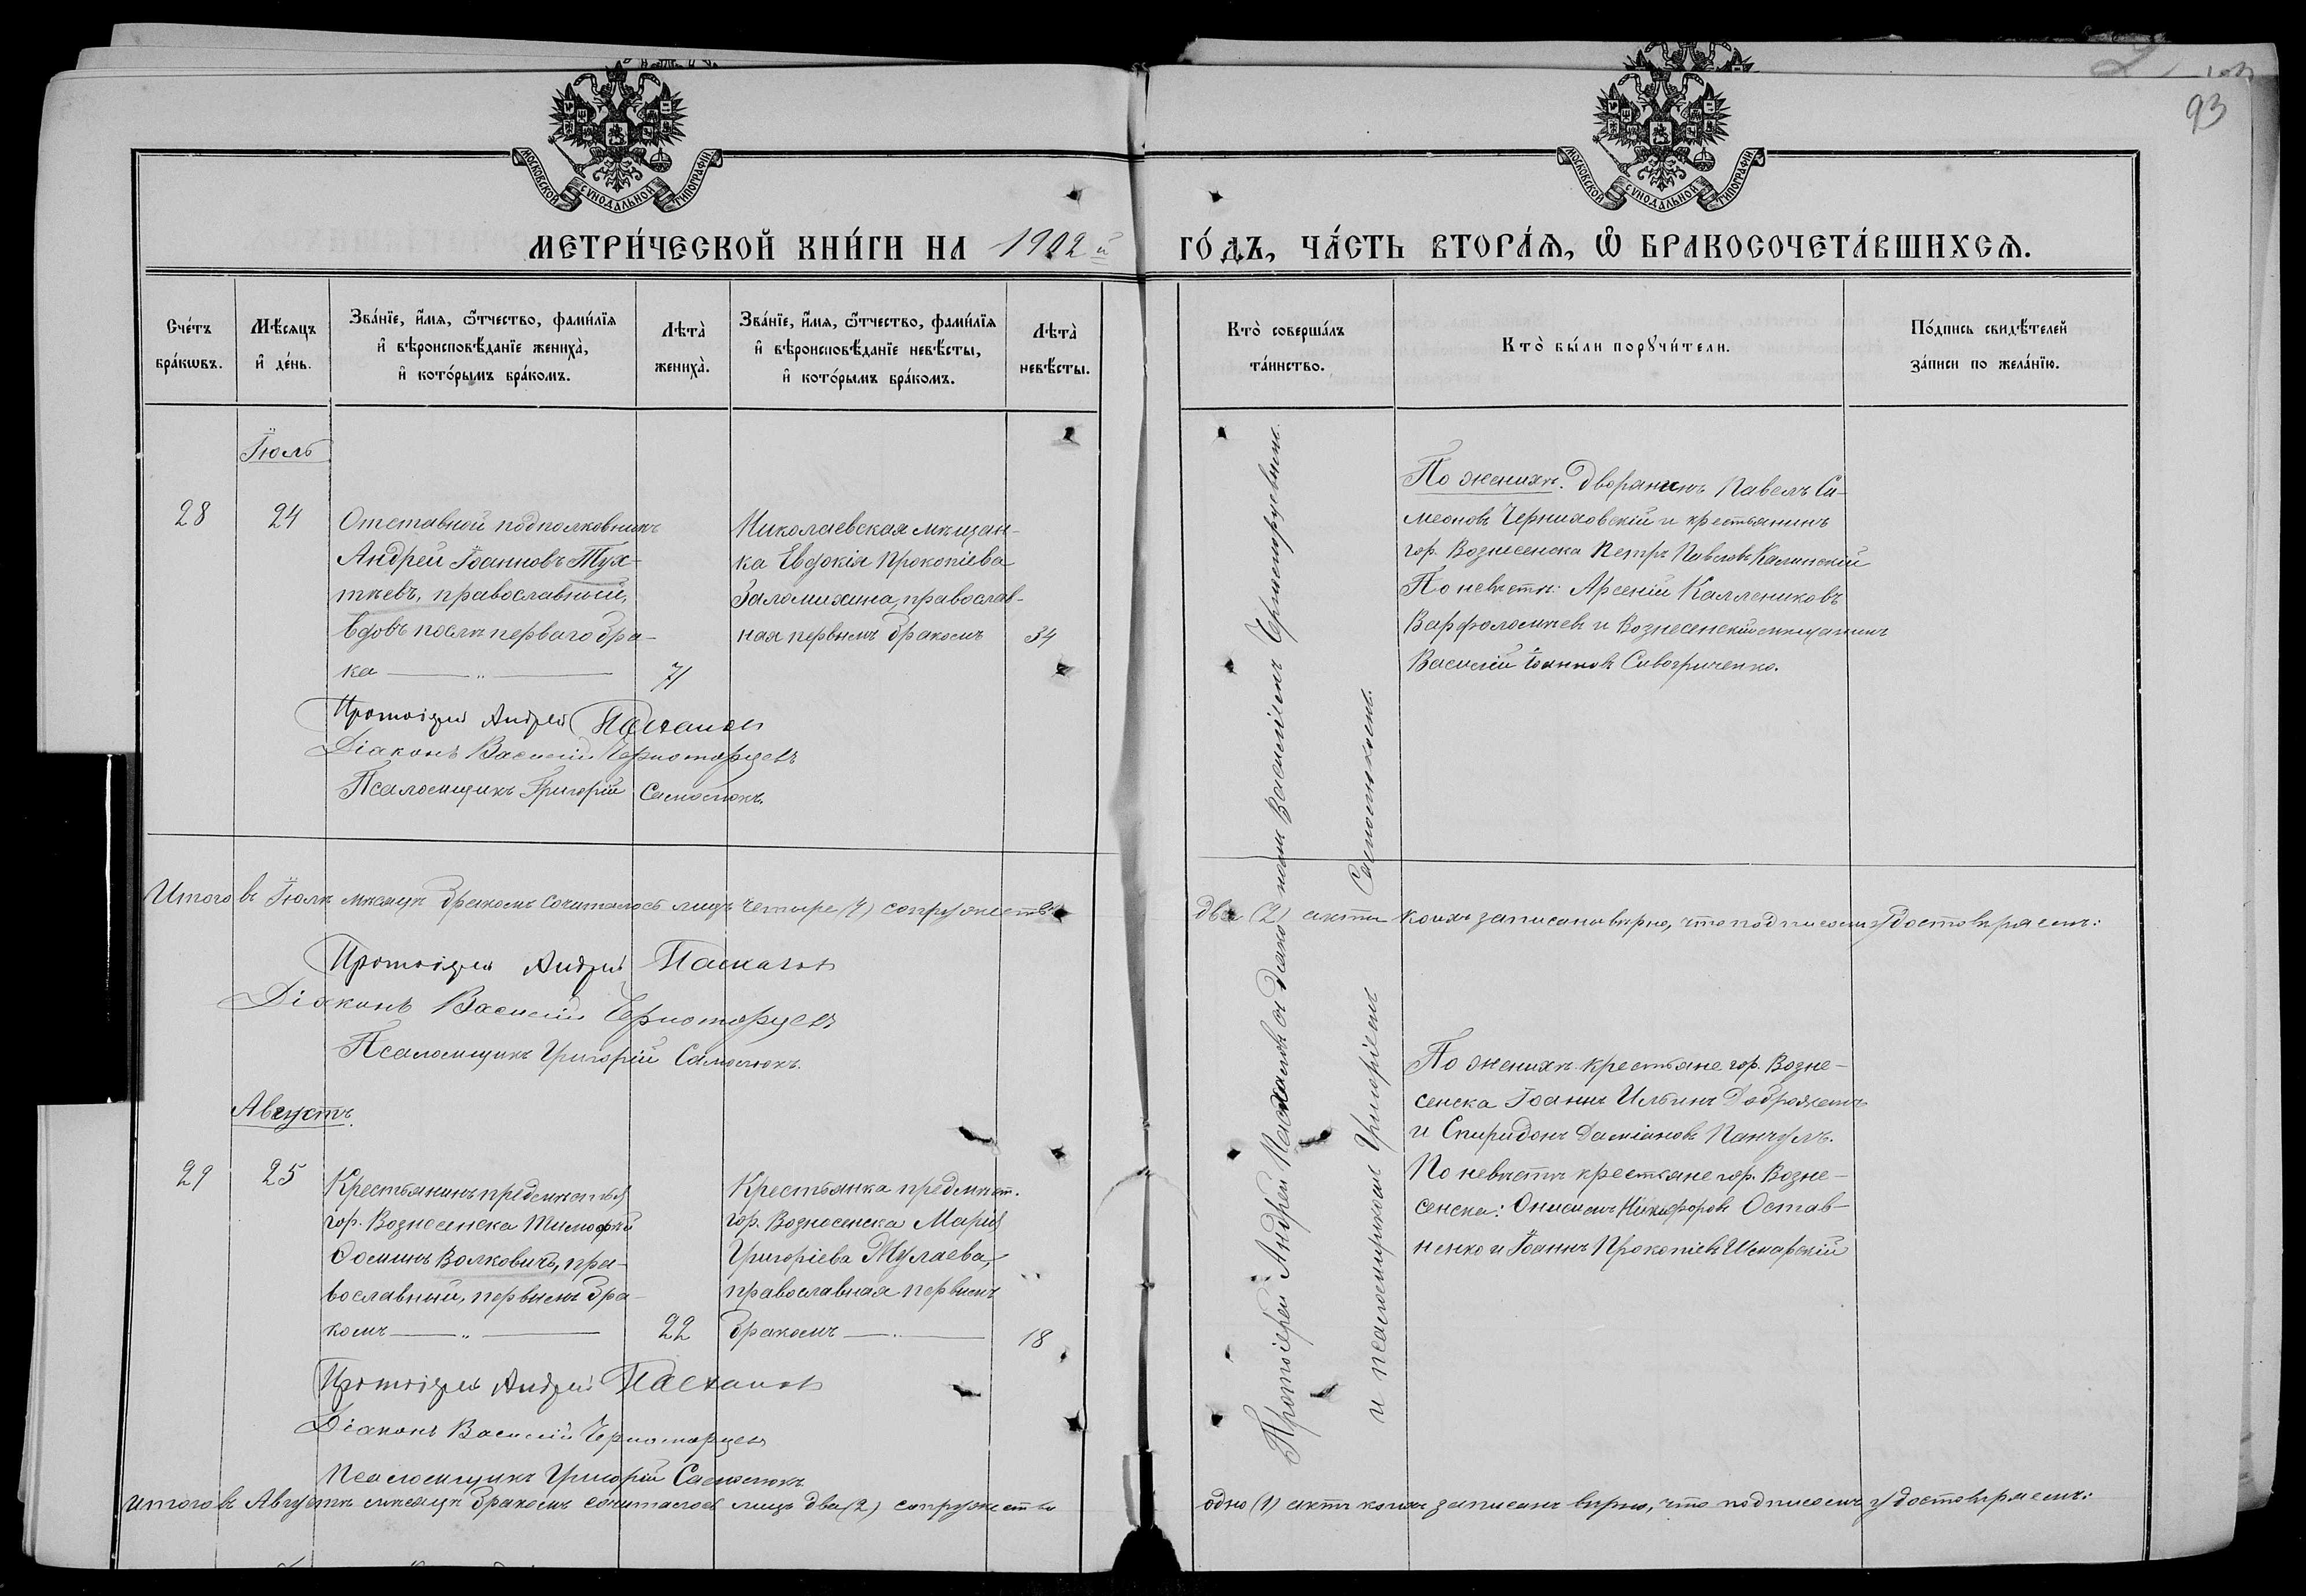 93
МОСКОВСКОЙ СѴНОДАЛЬНОЙ ТИПОГРАФІИ
МОСКОВСКОЙ СѴНОДАЛЬНОЙ ТИПОГРАФІИ
МЕТРИ́ЧЕСКОЙ КНИ́ГИ НА 1902 й ГО́ДЪ, ЧА́СТЬ ВТОРА́Ѧ, Ѽ БРАКОСОЧЕТА́ВШИХСѦ.
Сче́тъ
бра́кωвъ.
Мѣ́сяцъ
и҆ де́нь.
Зва́нїе, и҆́мя, ѻ҆́тчество, фами́лїя
и҆ вѣроисповѣ́данїе жениха̀,
и҆ кото́рымъ бра́комъ.
Лѣта̀
жениха̀.
Зва́нїе, и҆́мя, ѻ҆́тчество, фами́лїя
и҆ вѣроисповѣ́данїе невѣ́сты,
и҆ кото́рымъ бра́комъ.
Лѣта̀
невѣ́сты.
Кто̀ соверша́лъ
та́инство.
Кто̀ бы́ли порꙋчи́тели.
По́дпись свидѣ́телей
за́писи по жела́нїю.
Іюль
28
24
Отставной подполковникъ
Андрей Іоанновъ Тух-
тѣевъ, православный,
вдовъ послѣ перваго бра-
ка — „ —
71
Николаевская мѣщан-
ка Евдокія Прокопіева
Заломихина, православ-
ная первымъ бракомъ
34
Протоіерей Андрей
Діаконъ Василій Черноморцевъ
Псаломщикъ Григорій Самотюкъ.
По женихѣ: дворянинъ Павелъ Си-
меоновъ Черниховскій и крестьянинъ
гор. Вознесенска Петръ Павловъ Калинскій
По невѣстѣ: Арсеній Каллениковъ
Варфоломѣевъ и Вознесенскій мѣщанинъ
Василій Іоанновъ Сивогриченко.
Протоіерей Андрей съ діакономъ Василіемъ Черноморцевымъ
и псаломщикомъ Григоріемъ Самотюкомъ.
Итого въ Іюлѣ мѣсяцѣ бракомъ сочиталось лицъ четыре (4) супружествъ
два (2) акты коихъ записаны вѣрно, что подписомъ удостовѣряемъ:
Протоіерей Андрей
Діаконъ Василій Черноморцевъ
Псаломщикъ Григорій Самотюкъ.
Августъ.
29
25
Крестьянинъ предмѣстья
гор. Вознесенска Тимофей
Ѳоминъ Волковичъ, пра-
вославный, первымъ бра-
комъ — „ —
22
Крестьянка предмѣст.
гор. Вознесенска Марія
Григоріева Жулаева,
православная первымъ
бракомъ — „ —
18
Протоіерей Андрей
Діаконъ Василій Черноморцевъ
Псаломщикъ Григорій Самотюкъ
По женихѣ: крестьяне гор. Возне-
сенска Іоаннъ Ильинъ Доброжанъ
и Спиридонъ Даміановъ Панчулъ.
По невѣстѣ крестьяне гор. Возне-
сенска: Онисимъ Никифоровъ Остав-
ненко и Іоаннъ Прокопіевъ
Итого въ Августѣ мѣсяцѣ бракомъ сочиталось лицъ два (2) супружество
одно (1) актъ коихъ записанъ вѣрно, что подписомъ удостовѣряемъ: